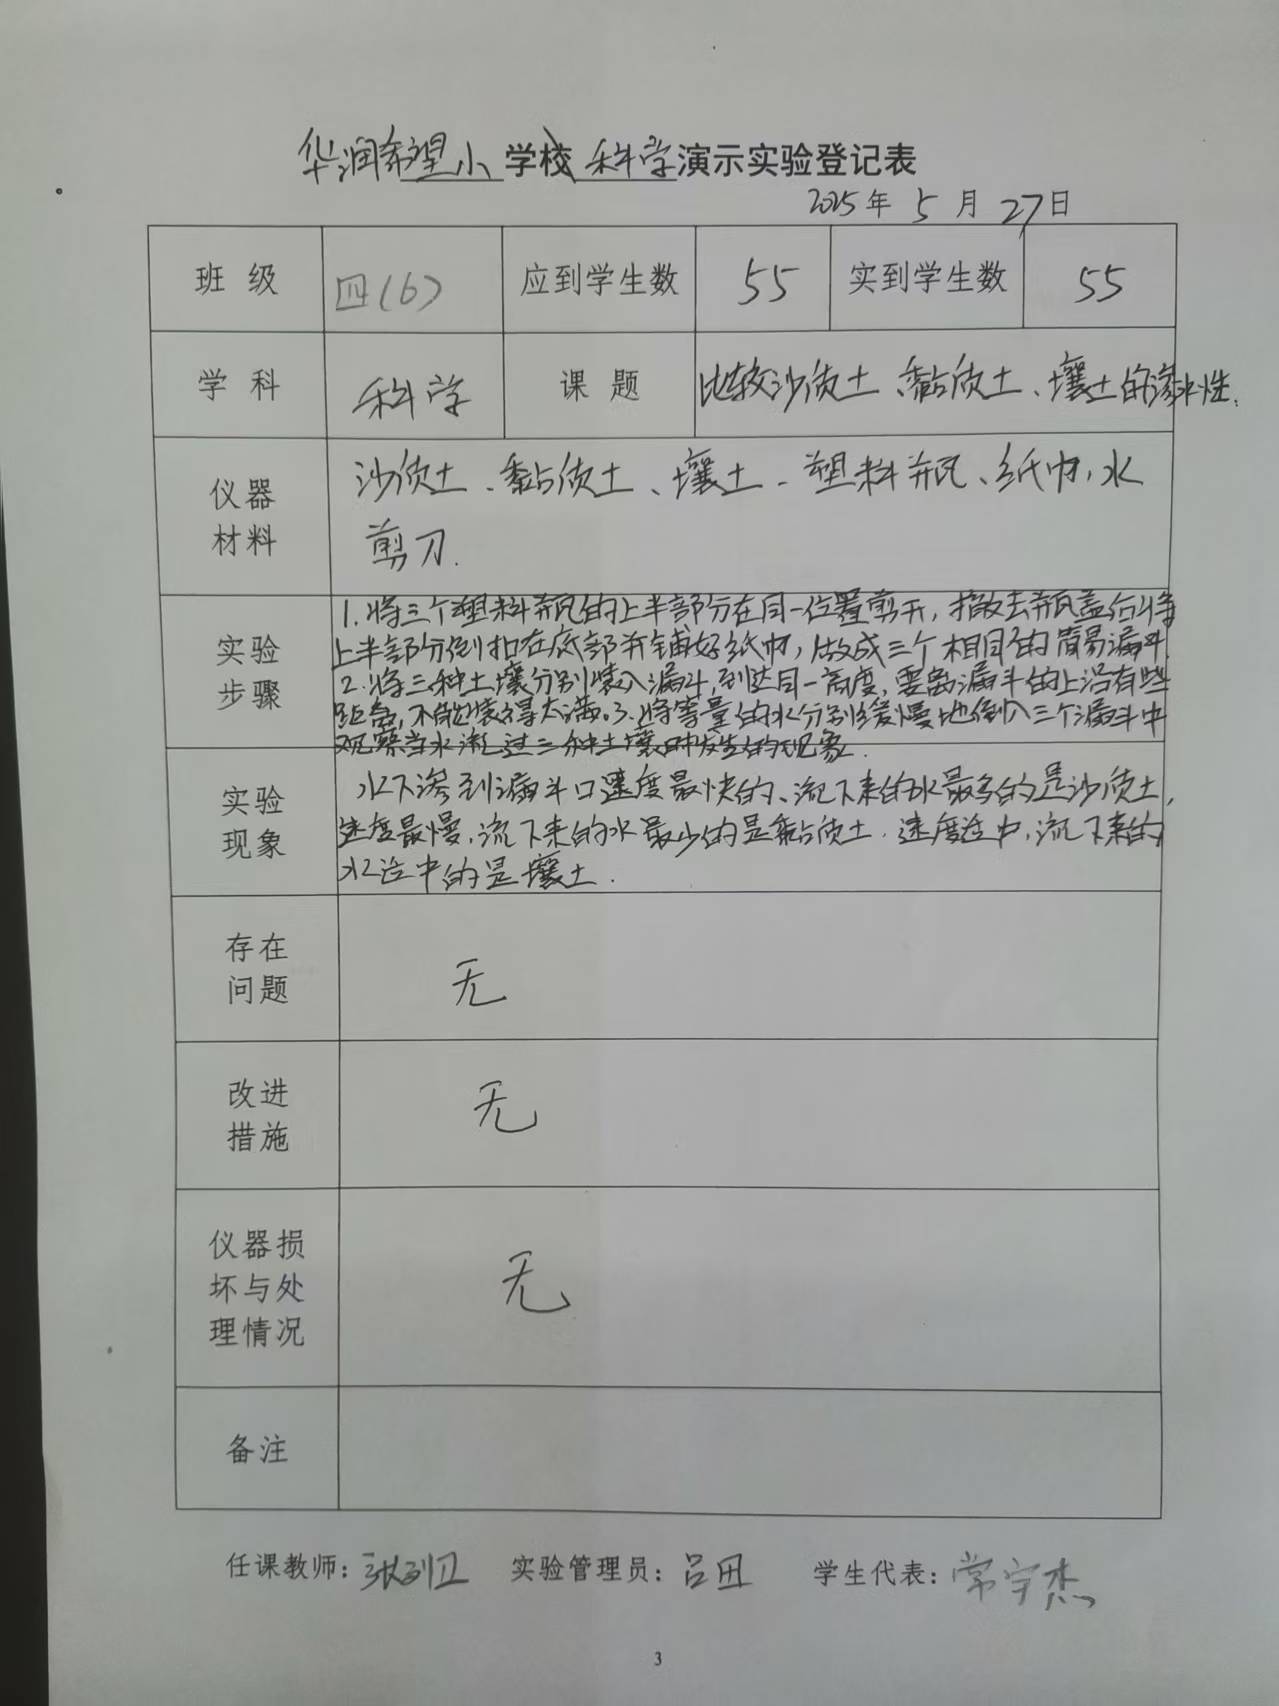 华润希望小学校科学演示实验登记表
2025年5月27日
班级 四(6) 应到学生数 55 实到学生数 55
学科 科学 课题 比较沙质土、黏质土、壤土的渗水性.
仪器材料 沙质土、黏质土、壤土、塑料瓶、纸巾,水
剪刀.
实验步骤 1.将三个塑料瓶的上半部分在同一位置剪开,撤去瓶盖后将
上半部分倒扣在底部并铺好纸巾,做成三个相同的简易漏斗.
2.将三种土壤分别装入漏斗,到达同一高度,要离漏斗的上沿有些
距离,不能装得太满。3.将等量的水分别缓慢地倒入三个漏斗中
观察当水流过三种土壤时发生的现象.
实验现象 水下渗到漏斗口速度最快的、流下来的水最多的是沙质土,
速度最慢,流下来的水最少的是黏质土.速度适中,流下来的
水适中的是壤土.
存在问题 无
改进措施 无
仪器损坏与处理情况 无
备注
任课教师: 实验管理员:吕田 学生代表:常宇杰
3